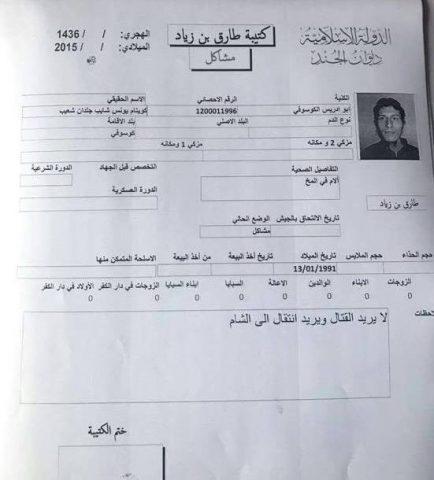 الدولة الإسلامية
ديوان الجند
كتيبة طارق بن زياد
مشاكل
الهجري: / / 1436
الميلادي: / / 2015
الكنية الرقم الاحصائي الاسم الحقيقي
ابو ادريس الكوسوفي 1200011996 شعيب
نوع الدم البلد الاصلي بلد الاقامة
كوسوفي
مزكي 2 و مكانه مزكي 1 ومكانه
التفاصيل الصحية التخصص قبل الجهاد الدورة الشرعية
آلام في المخ
الدورة العسكرية
طارق بن زياد
تاريخ الالتحاق بالجيش الوضع الحالي
مشاكل
حجم الحذاء حجم الملابس تاريخ الميلاد تاريخ أخذ البيعة من أخذ البيعة الاسلحة المتمكن منها
13/01/1991
الزوجات الابناء الوالدين الاعالة السبايا ابناء السبايا الزوجات في دار الكفر الأولاد في دار الكفر
0 0 0 0 0 0 0 0
لا يريد القتال ويريد انتقال الى الشام
ختم الكتيبة